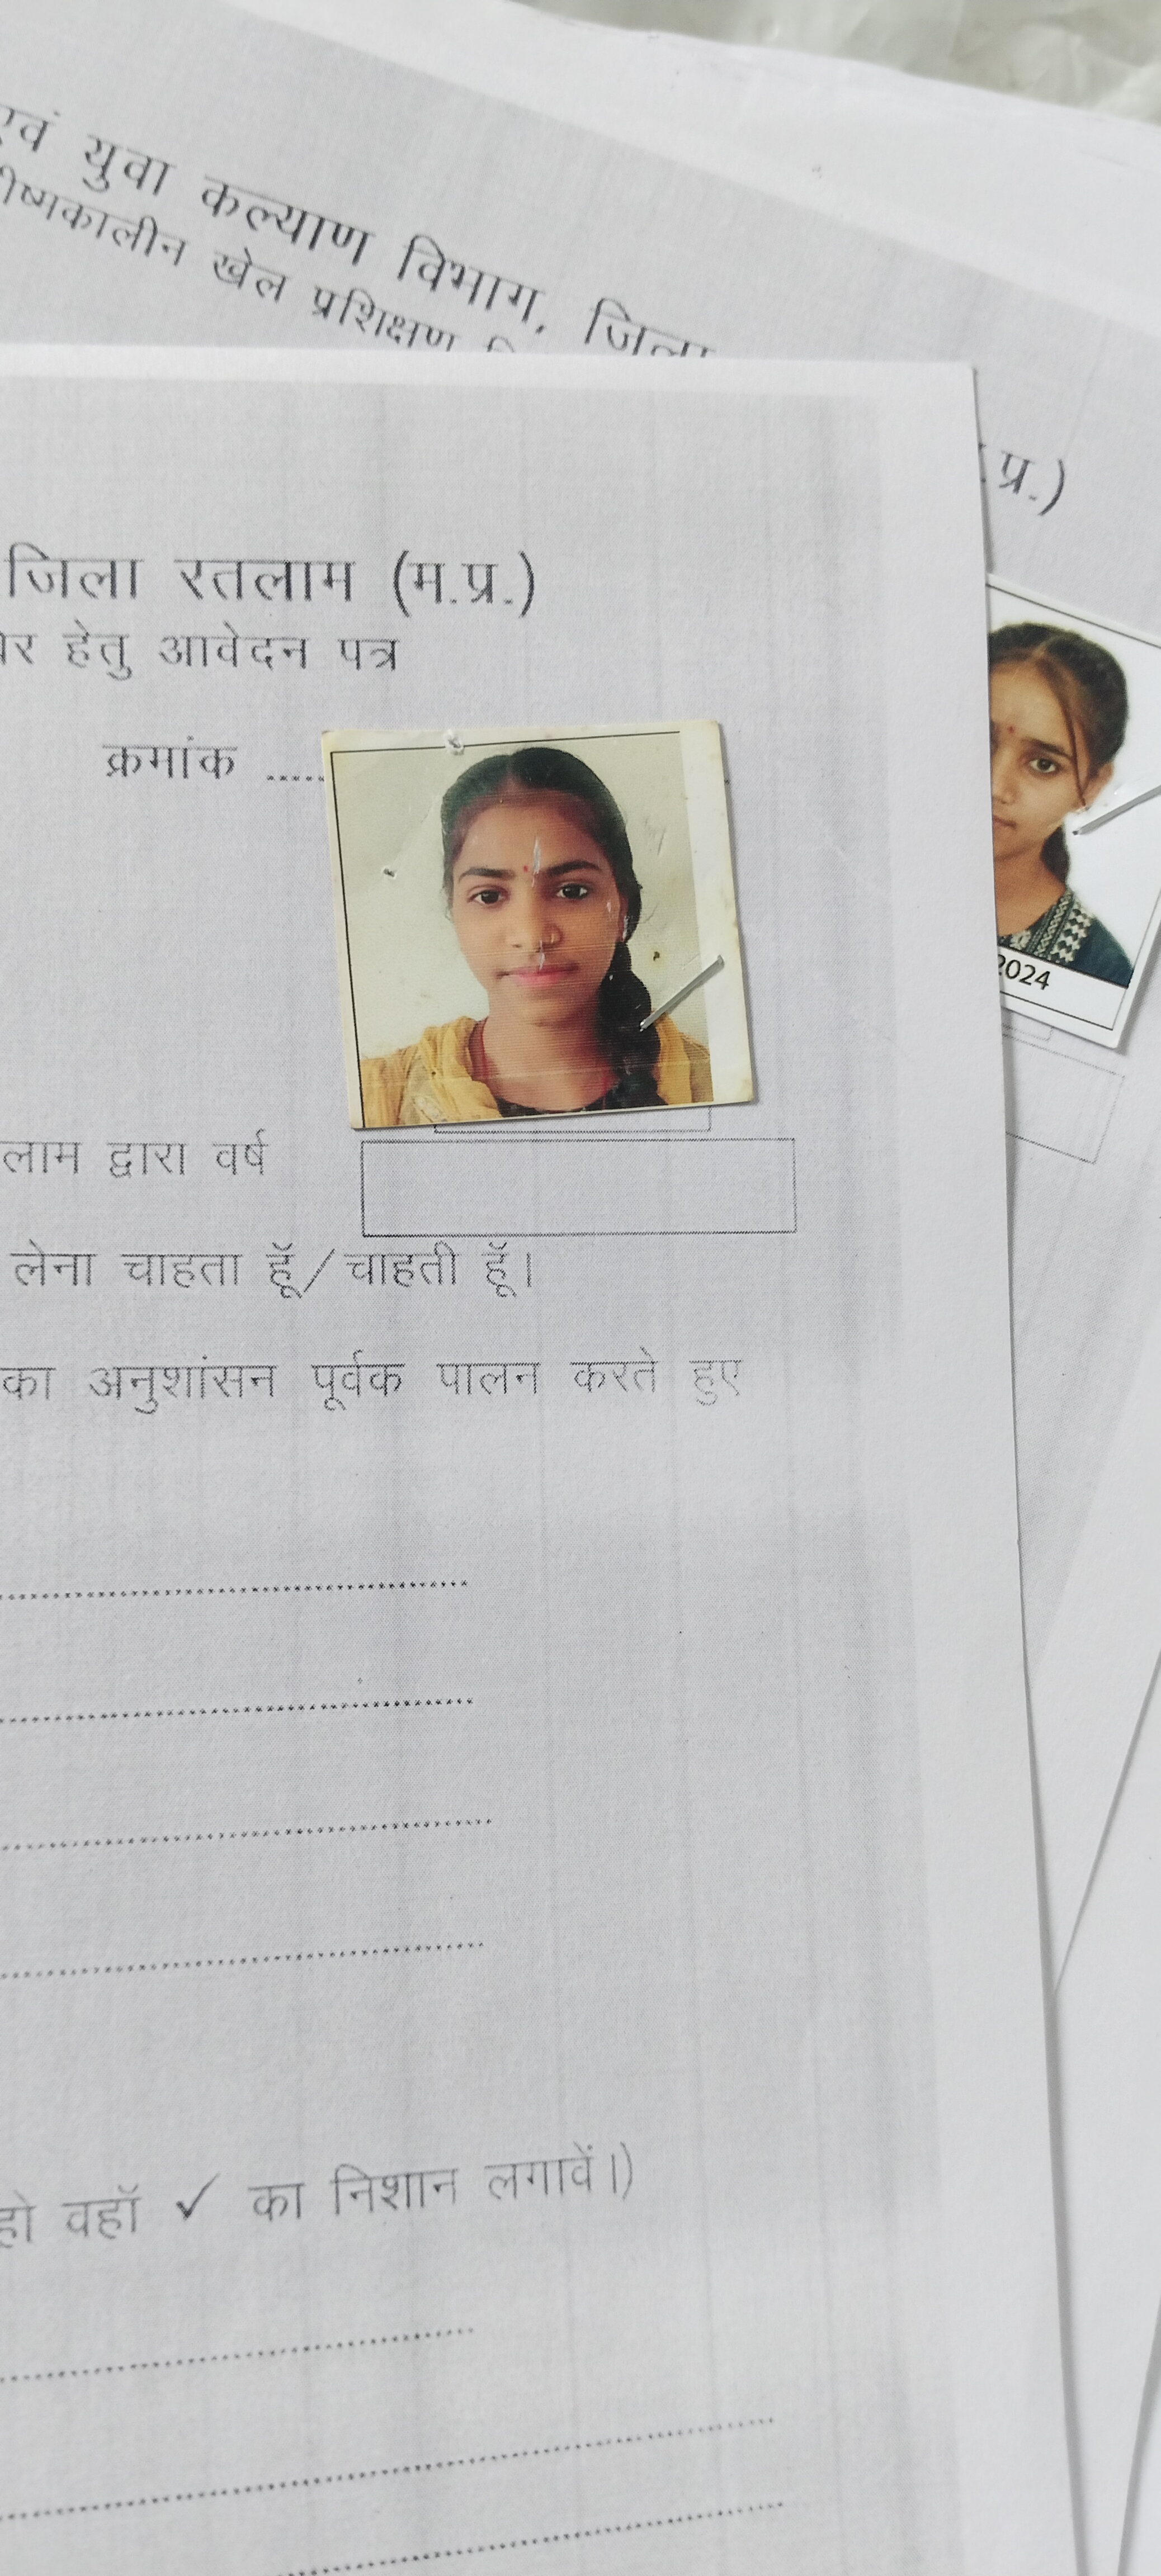 एवं युवा कल्याण विभाग, जिला
खेल प्रशिक्षण
प्र.)
जिला रतलाम (म.प्र.)
हेतु आवेदन पत्र
क्रमांक .....
2024
द्वारा वर्ष
लेना चाहता हूॅ/चाहती हूॅ।
का अनुशांसन पूर्वक पालन करते हुए
हो वहॉ ✓ का निशान लगावें।)